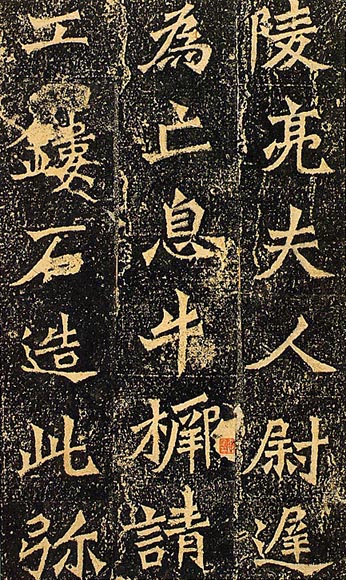 陵亮夫人尉遲
為亡息牛橛請
工鏤石造此弥